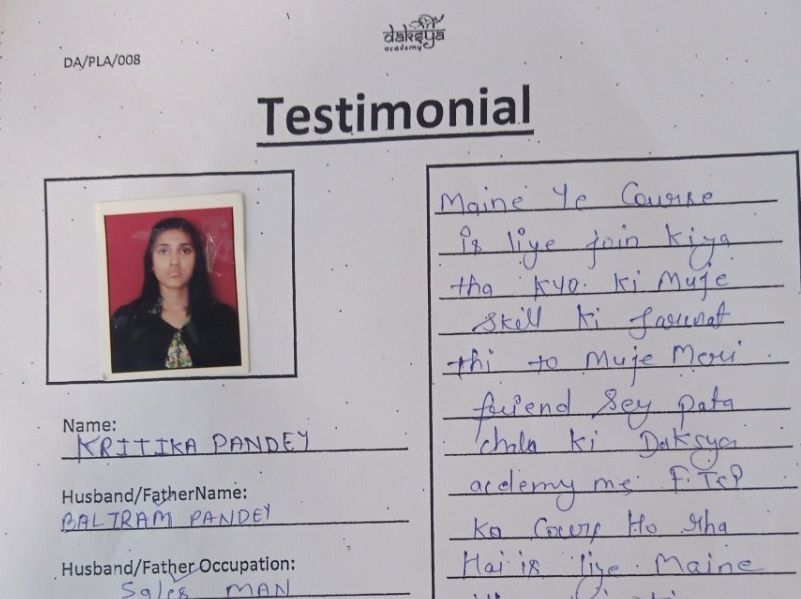 daksya
academy
DA/PLA/008
Testimonial
Name:
KRITIKA PANDEY
Husband/FatherName:
BALIRAM PANDEY
Husband/Father Occupation:
Sales MAN
Maine Ye Course
is liye join kiya
tha kyo. ki Muje
skill ki jarurat
thi to Muje Meri
friend sey pata
chala ki Daksya
acdemy me F.TCP
ka Cours Ho rha
Hai is liye Maine